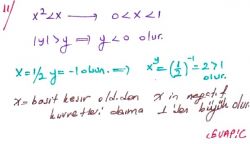 11/
x² < x ⟶ 0 < x < 1
|y| > y ⟹ y < 0 olur.
x = 1/2 y = -1 olsun. ⟹ x^y = (1/2)^-1 = 2 > 1
olur.
x = basit kesir old.den x in negatif
kuvvetleri daima 1 den büyük olur.
CEVAP: C